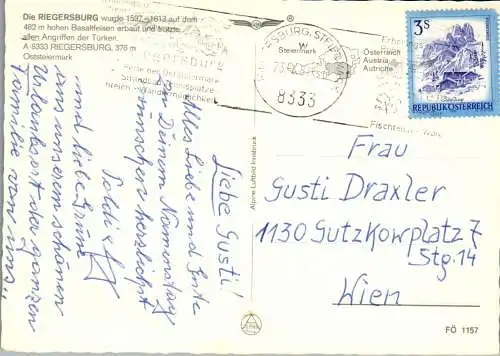 Die RIEGERSBURG wurde 1597 - 1613 auf dem
482 m hohen Basaltfelsen erbaut und trotzte
allen Angriffen der Türken.
A 8333 RIEGERSBURG, 376 m
Oststeiermark
Liebe Gusti!
Alles Liebe und Gute
zu Deinem Namenstag
wünschen herzlichst
Poldi &
und liebe Grüße
aus unserem schönen
Urlaubsort der ganzen
Familie von uns"
Alpine Luftbild Innsbruck
RIEGERSBURG, STEIERM
8333
Steiermark
Österreich
Austria
Autriche
3S
REPUBLIK ÖSTERREICH
Frau
Gusti Draxler
1130 Gutzkowplatz 7
Stg. 14
Wien
FÖ 1157